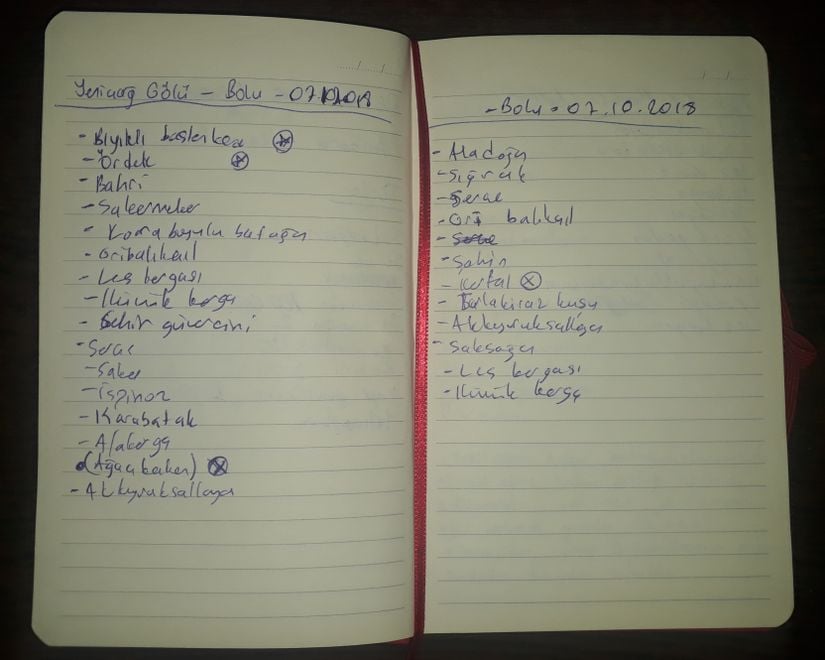 Yeniçağ Gölü - Bolu - 07.10.2018
- Bıyıklı baştankara
- Ördek
- Bahri
- Sakarmeke
- Kara boyunlu batağan
- Gri balıkçıl
- Leş kargası
- Küçük karga
- Şehir güvercini
- Serçe
- Saka
- İspinoz
- Karabatak
- Alakarga
(Ağaçkakan)
- Akkuyruksallayan
- Bolu - 07.10.2018
- Aladoğan
- Sığırcık
- Serçe
- Gri balıkçıl
- Şahin
- Kartal
- Akkuyruksallayan
- Saksağan
- Leş kargası
- Küçük karga